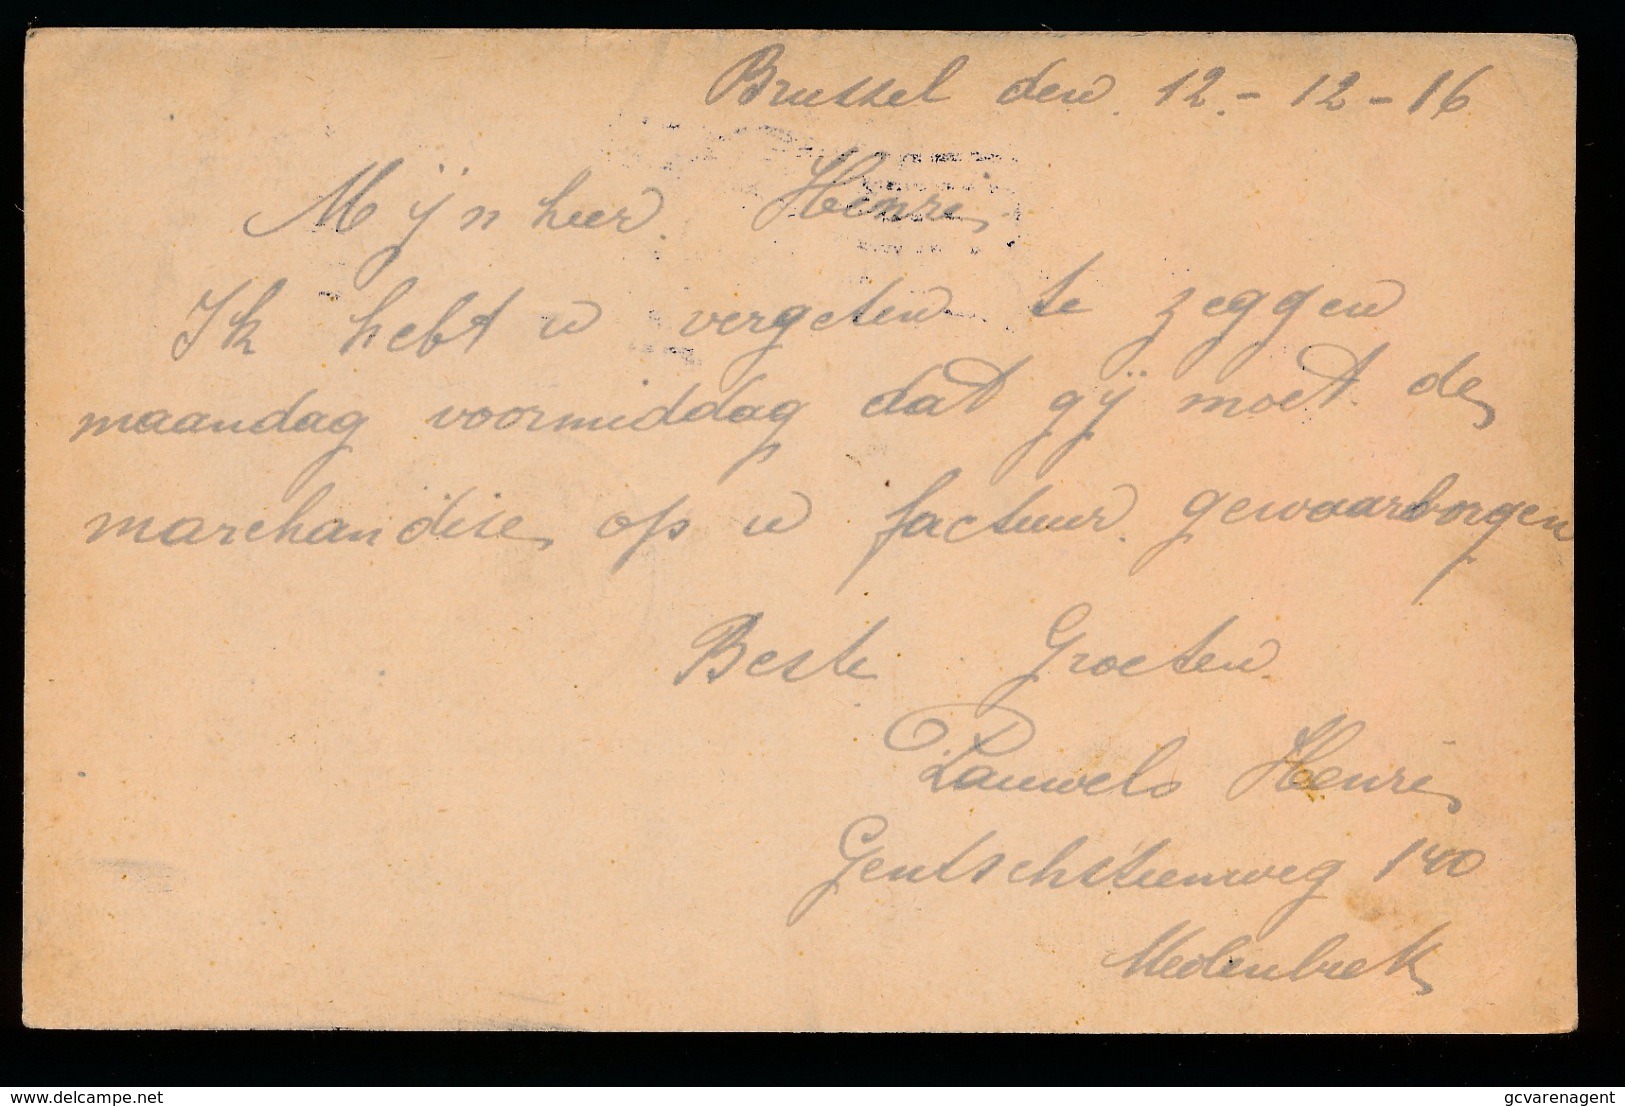 Brussel den. 12.-12-16
Mijnheer. Henri
Ik hebt u vergeten te zeggen
maandag voormiddag dat gÿ moet de
marchandise op u factuur. gewaarborgen
Beste Groeten.
Pauwels Henri
Gentschsteenweg 140
Molenbeek
delcampe.net
gcvarenagent